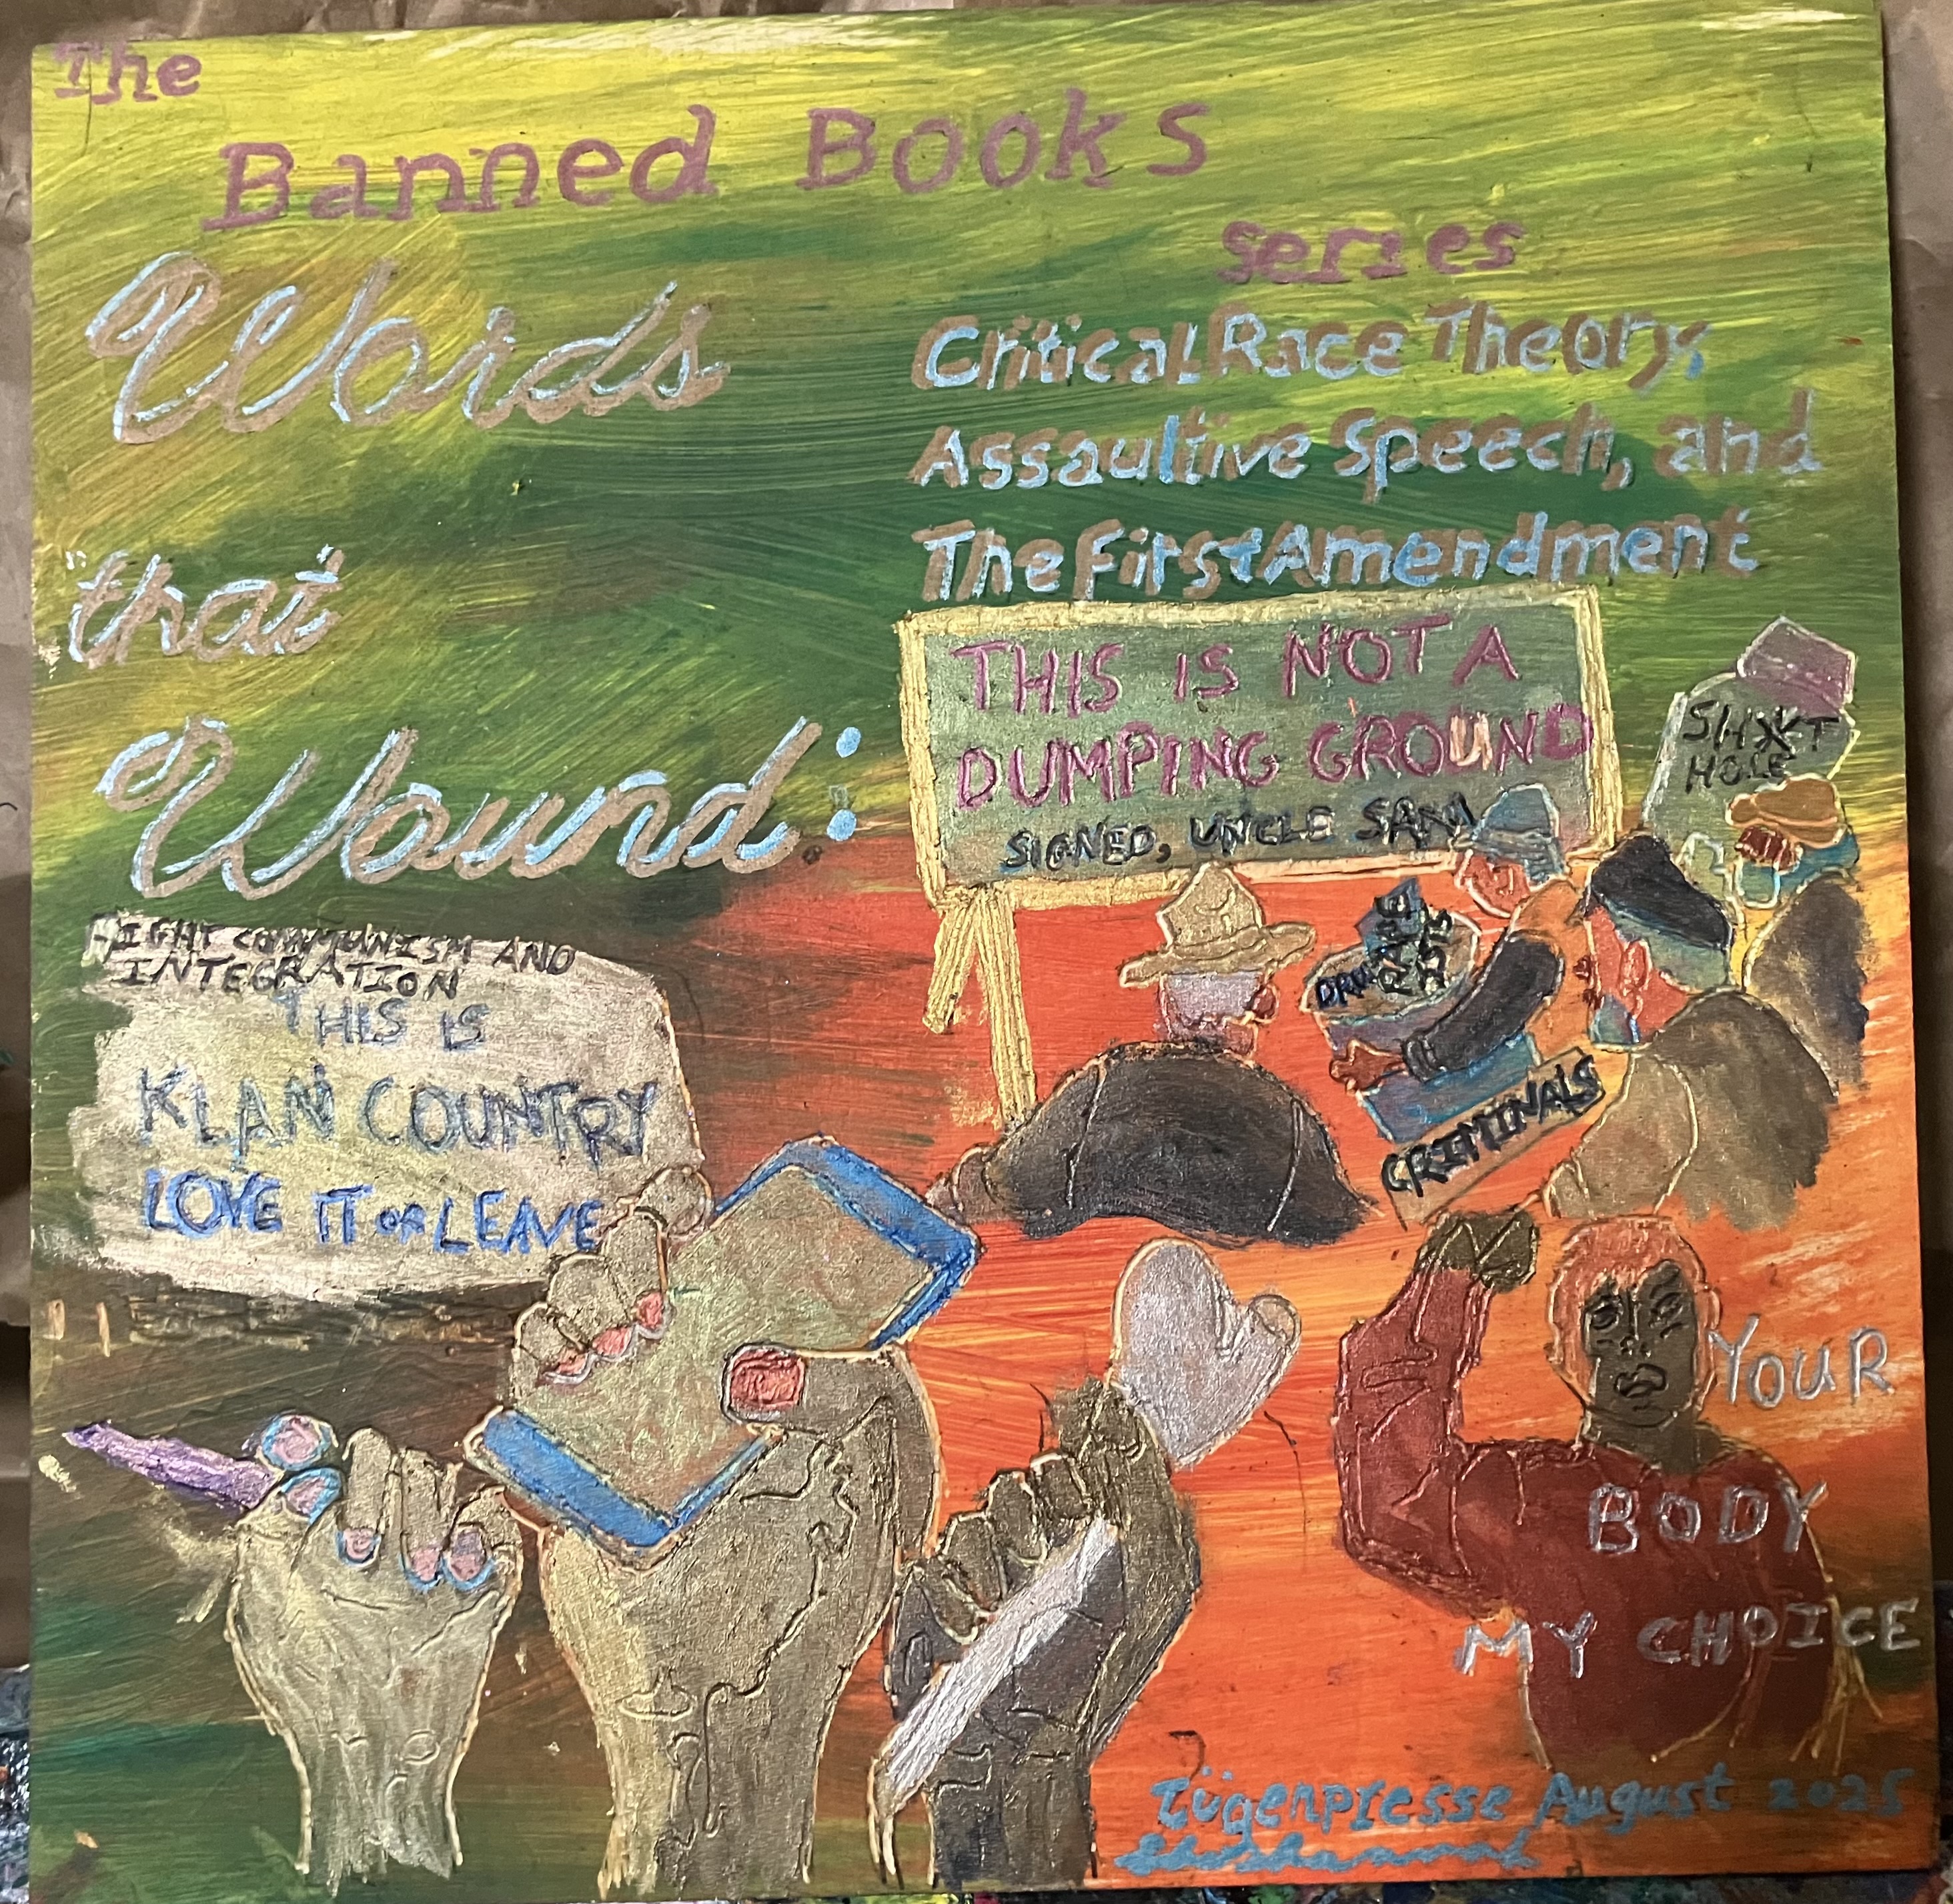 The
Banned Books
series
Words
that
Wound:
Critical Race Theory,
Assaultive Speech, and
The First Amendment
THIS IS NOT A
DUMPING GROUND
SIGNED, UNCLE SAM
SHXT
HOLE
FIGHT COMMUNISM AND
INTEGRATION
THIS IS
KLAN COUNTRY
LOVE IT OR LEAVE
CRIMINALS
YOUR
BODY
MY CHOICE
Lügenpresse August 2025